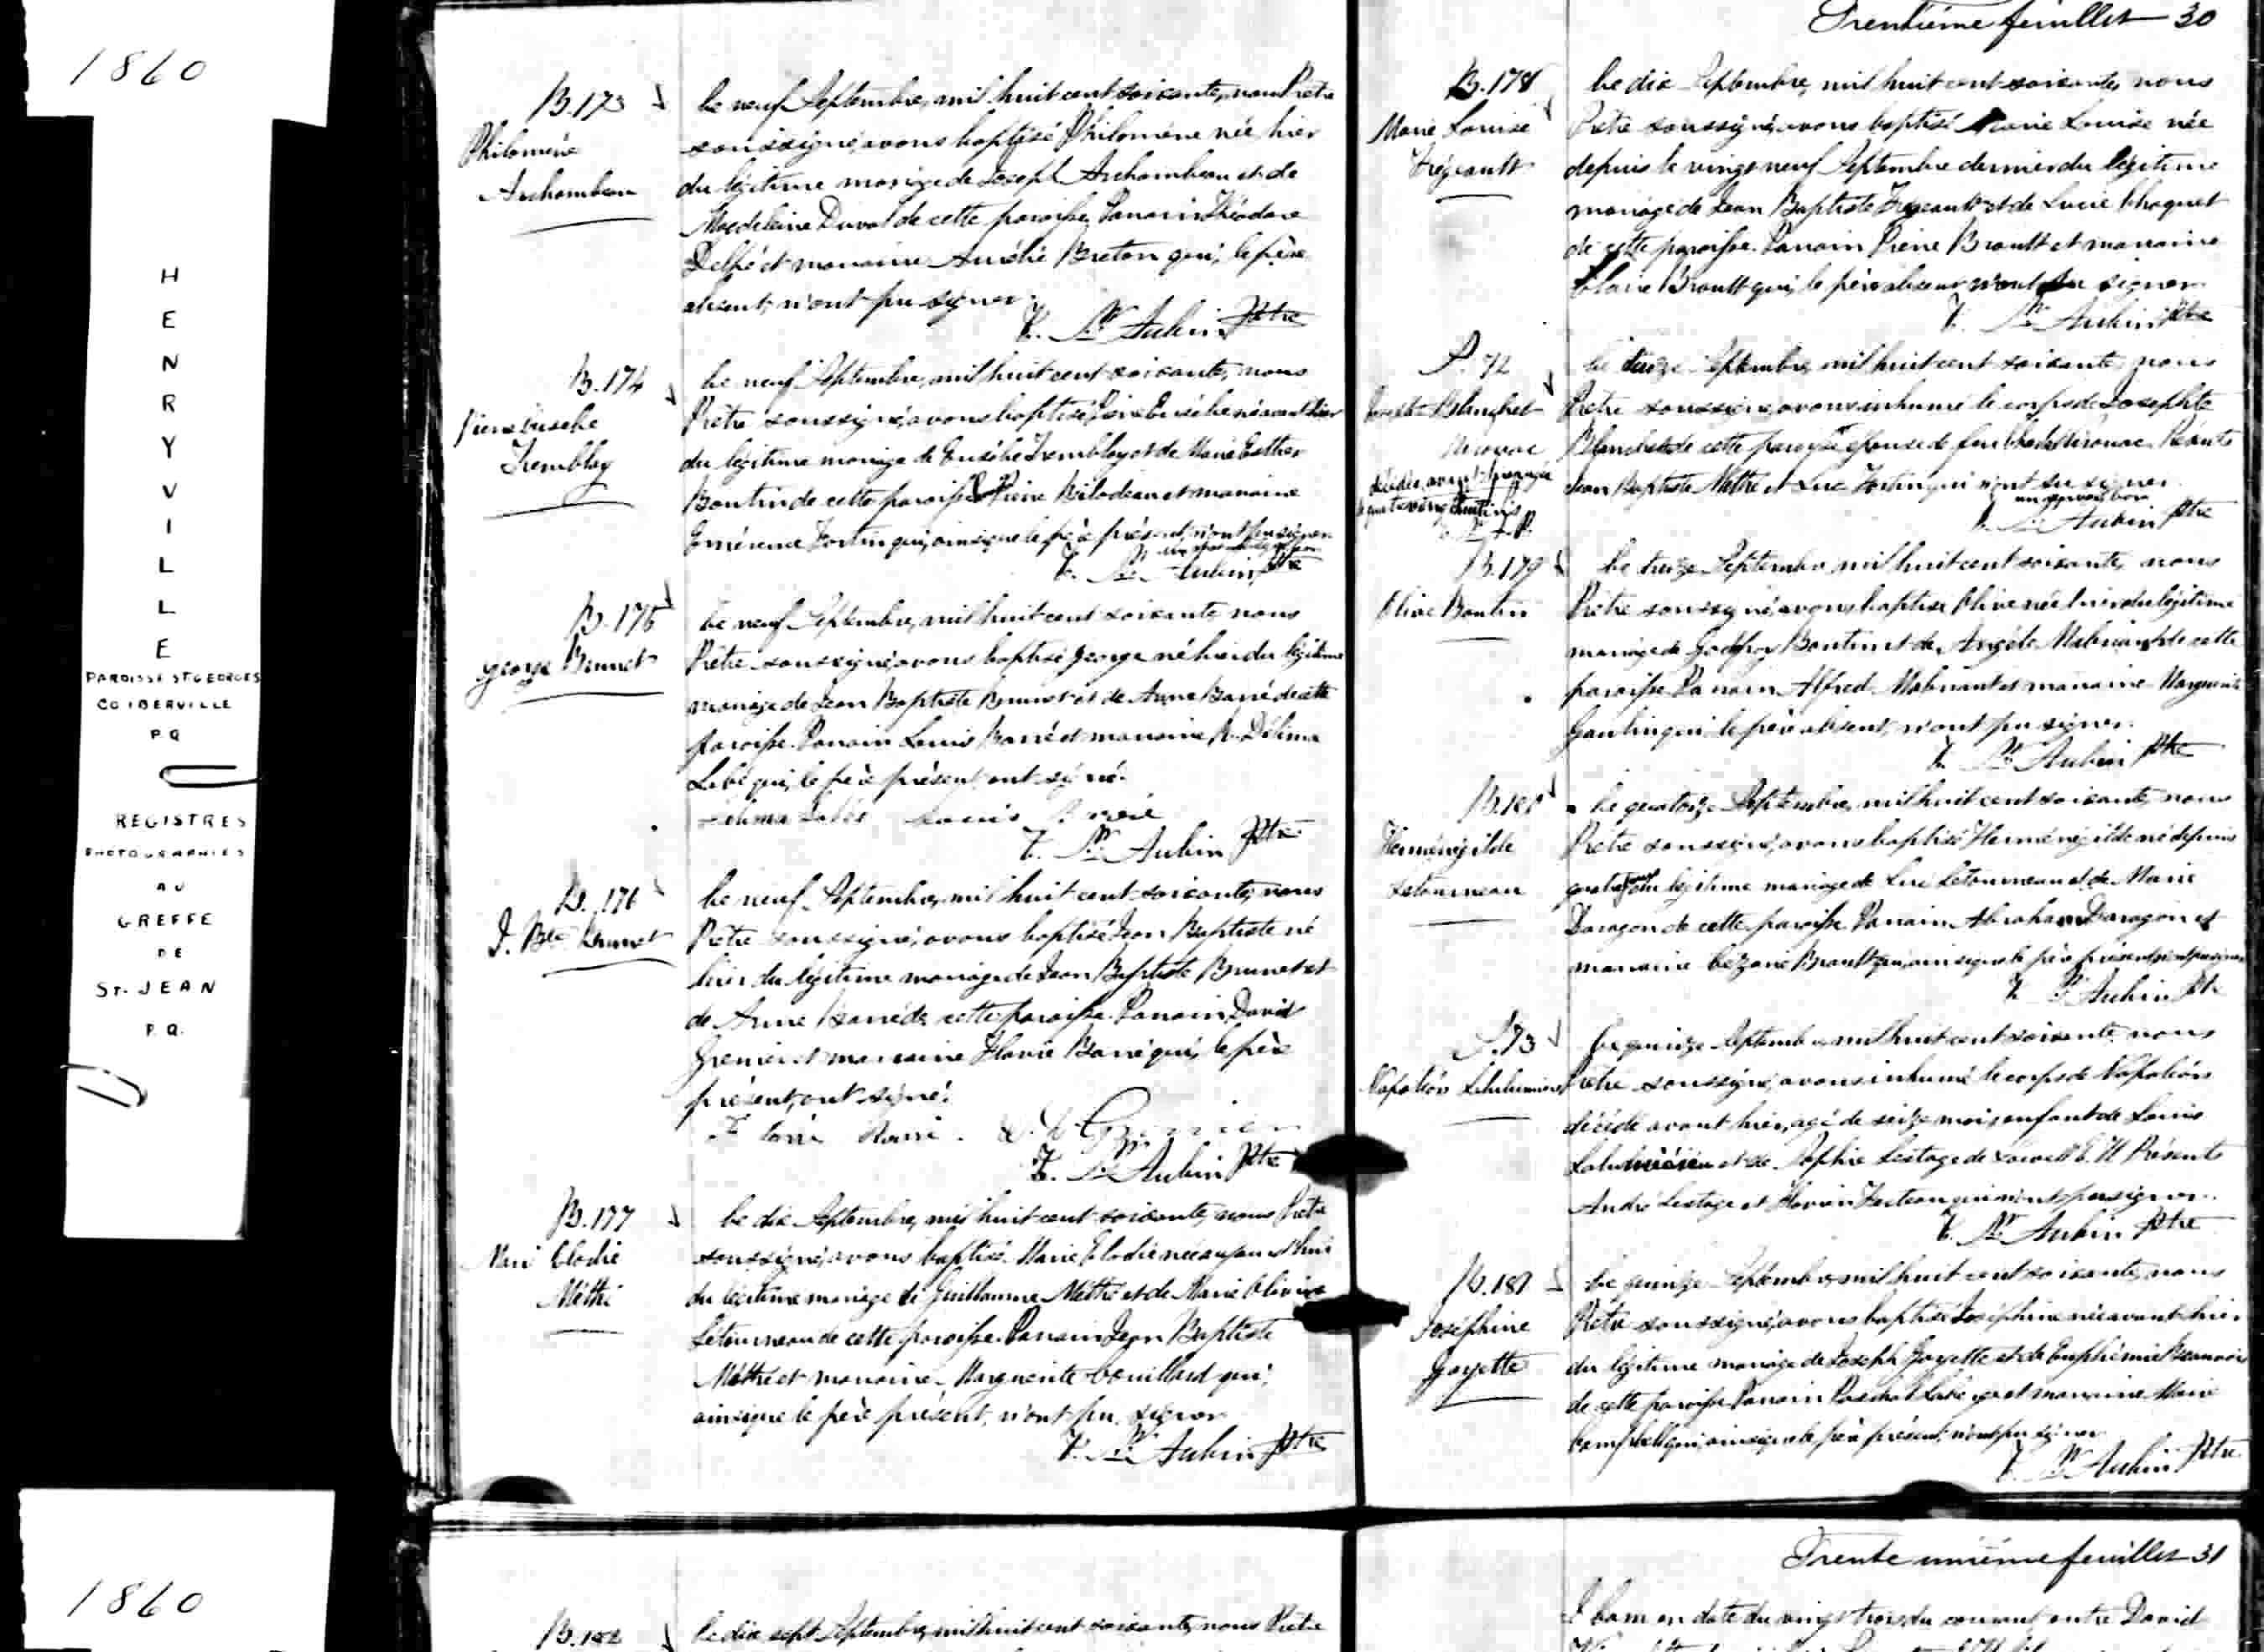 1860
HENRYVILLE
PAROISSE ST GEORGES
CO IBERVILLE
P Q
REGISTRES
PHOTOGRAPHIES
AU
GREFFE
DE
ST. JEAN
P.Q.
1860
B.173
Philomène
Archambeau
Le neuf Septembre, mil huit cent soixante, nous Prêtre
soussigné, avons baptisé Philomène née hier
du légitime mariage de Joseph Archambeau et de
Magdeleine Duval de cette paroisse, Parrain Théodore
Delpé et marraine Aurélie Breton qui, le père
absent, n'ont pu signer.
F. St Aubin Ptre
B.174
Pierre Eusèbe
Tremblay
Le neuf Septembre, mil huit cent soixante, nous
Prêtre soussigné, avons baptisé Pierre Eusèbe né avant hier
du légitime mariage de Eusèbe Tremblay et de Marie Esther
Boutin de cette paroisse Pierre Bilodeau et marraine
Emérence Fortin qui, ainsi que le père présent, n'ont pu signer
F. St Aubin Ptre
B.175
George Brunet
Le neuf Septembre, mil huit cent soixante, nous
Prêtre soussigné, avons baptisé George né hier du légitime
mariage de Jean Baptiste Brunet et de Anne Barré de cette
paroisse. Parrain Louis Barré et marraine Délima
Labé qui, le père présent, ont signé.
Louis Barré
F. St Aubin Ptre
B.176
J. Bte Brunet
Le neuf Septembre, mil huit cent soixante, nous
Prêtre soussigné, avons baptisé Jean Baptiste né
hier du légitime mariage de Jean Baptiste Brunet et
de Anne Barré de cette paroisse. Parrain David
Grenier et marraine Flavie Barré qui, le père
présent, ont signé.
Grenier
F. St Aubin Ptre
B.177
Marie Elodie
Méthé
Le dix Septembre, mil huit cent soixante, nous Prêtre
soussigné, avons baptisé Marie Elodie née aujourd'hui
du légitime mariage de Guillaume Méthé et de Marie Olivine
Létourneau de cette paroisse. Parrain Jean Baptiste
Méthé et marraine Marguerite Couillard qui,
ainsi que le père présent, n'ont pu signer
F. St Aubin Ptre
B.182
Le dix sept Septembre, mil huit cent soixante, nous Prêtre
Trentième feuillet 30
B.178
Marie Louise
Frégeault
Le dix Septembre, mil huit cent soixante, nous
Prêtre soussigné, avons baptisé Marie Louise née
depuis le vingt neuf Septembre dernier du légitime
mariage de Jean Baptiste Frégeault et de Lucie Choquet
de cette paroisse. Parrain Pierre Brault et marraine
Claire Brault qui, le père absent n'ont su signer
F. St Aubin Ptre
S.72
Blanchet
Le treize Septembre, mil huit cent soixante, nous
Prêtre soussigné, avons inhumé le corps de Josephte
Blanchet de cette paroisse épouse de feu Présents
Jean Baptiste Méthé et Luc Fortin qui n'ont su signer.
F. St Aubin Ptre
B.179
Olive Boutin
Le treize Septembre, mil huit cent soixante, nous
Prêtre soussigné, avons baptisé Olive née hier du légitime
mariage de Godfroy Boutin et de Angèle de cette
paroisse Parrain Alfred et marraine Marguerite
Gaulin qui le père absent, n'ont pu signer.
F. St Aubin Ptre
B.180
Herménégilde
Letourneau
Le quatorze Septembre, mil huit cent soixante, nous
Prêtre soussigné, avons baptisé Herménégilde né depuis
quatre jours du légitime mariage de Luc Letourneau et de Marie
Daragon de cette paroisse Parrain Abraham Daragon et
marraine Cézarie Brault qui, ainsi que le père présent, n'ont pu signer
F. St Aubin Ptre
S.73
Napoléon
Le quinze Septembre mil huit cent soixante nous
Prêtre soussigné, avons inhumé le corps de Napoléon
décédé avant hier, agé de seize mois, enfant de Louis
et de Sophie Lestage de Lowell E. U Présents
André Lestage et qui n'ont pu signer.
F. St Aubin Ptre
B.181
Joséphine
Goyette
Le quinze Septembre, mil huit cent soixante, nous
Prêtre soussigné, avons baptisé Joséphine née avant hier
du légitime mariage de Joseph Goyette et de Euphémie
de cette paroisse Parrain Paschal et marraine Marie
Campbell qui, ainsi que le père présent, n'ont pu signer
F. St Aubin Ptre
Trente unième feuillet 31
en date du vingt trois du courant entre David